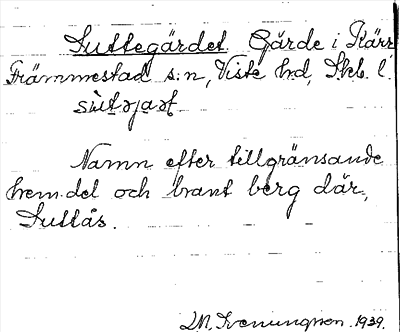 Suttegärdet. Gärde i Kärr
Främmestad s:n, Viste hd, Skb. l.
Namn efter tillgränsande
hem.del och brant berg där,
Suttås.
1939.